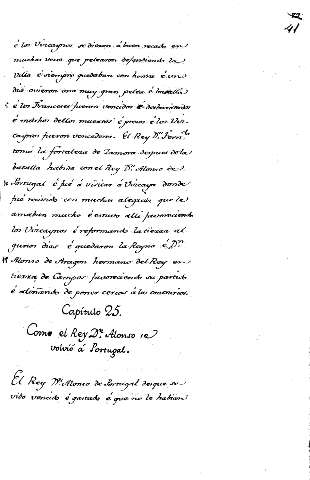 41
é los Vizcaynos se dieron á buen recado en
muchas veces que pelearon defendiendo la
villa é siempre quedaban con honra é un
dia ovieron una muy gran pelea é batalla
é los Franceses fueron vencidos é desbaratados
é muchos dellos muertos é presos é los Viz-
caynos fueron vencedores. El Rey Dn. Fern.do
tomó la fortaleza de Zamora despues de la
batalla habida con el Rey Dn. Alonso de
Portugal é fué á visitar á Vizcaya donde
fué recevido con mucha alegria que le
amaban mucho é estuvo alli favoreciendo
los Vizcaynos é reformando la tierra al
gunos dias é quedaron la Reyna é Dn.
Alonso de Aragon hermano del Rey en
tierra de Campos favoreciendo su partido
é alimando de poner cercos á los contrarios.
Capítulo 25.
Como el Rey Dn. Alonso se
volvió á Portugal.
El Rey Dn. Alonso de Portugal desque se
vido vencido é gastado é que no le habian